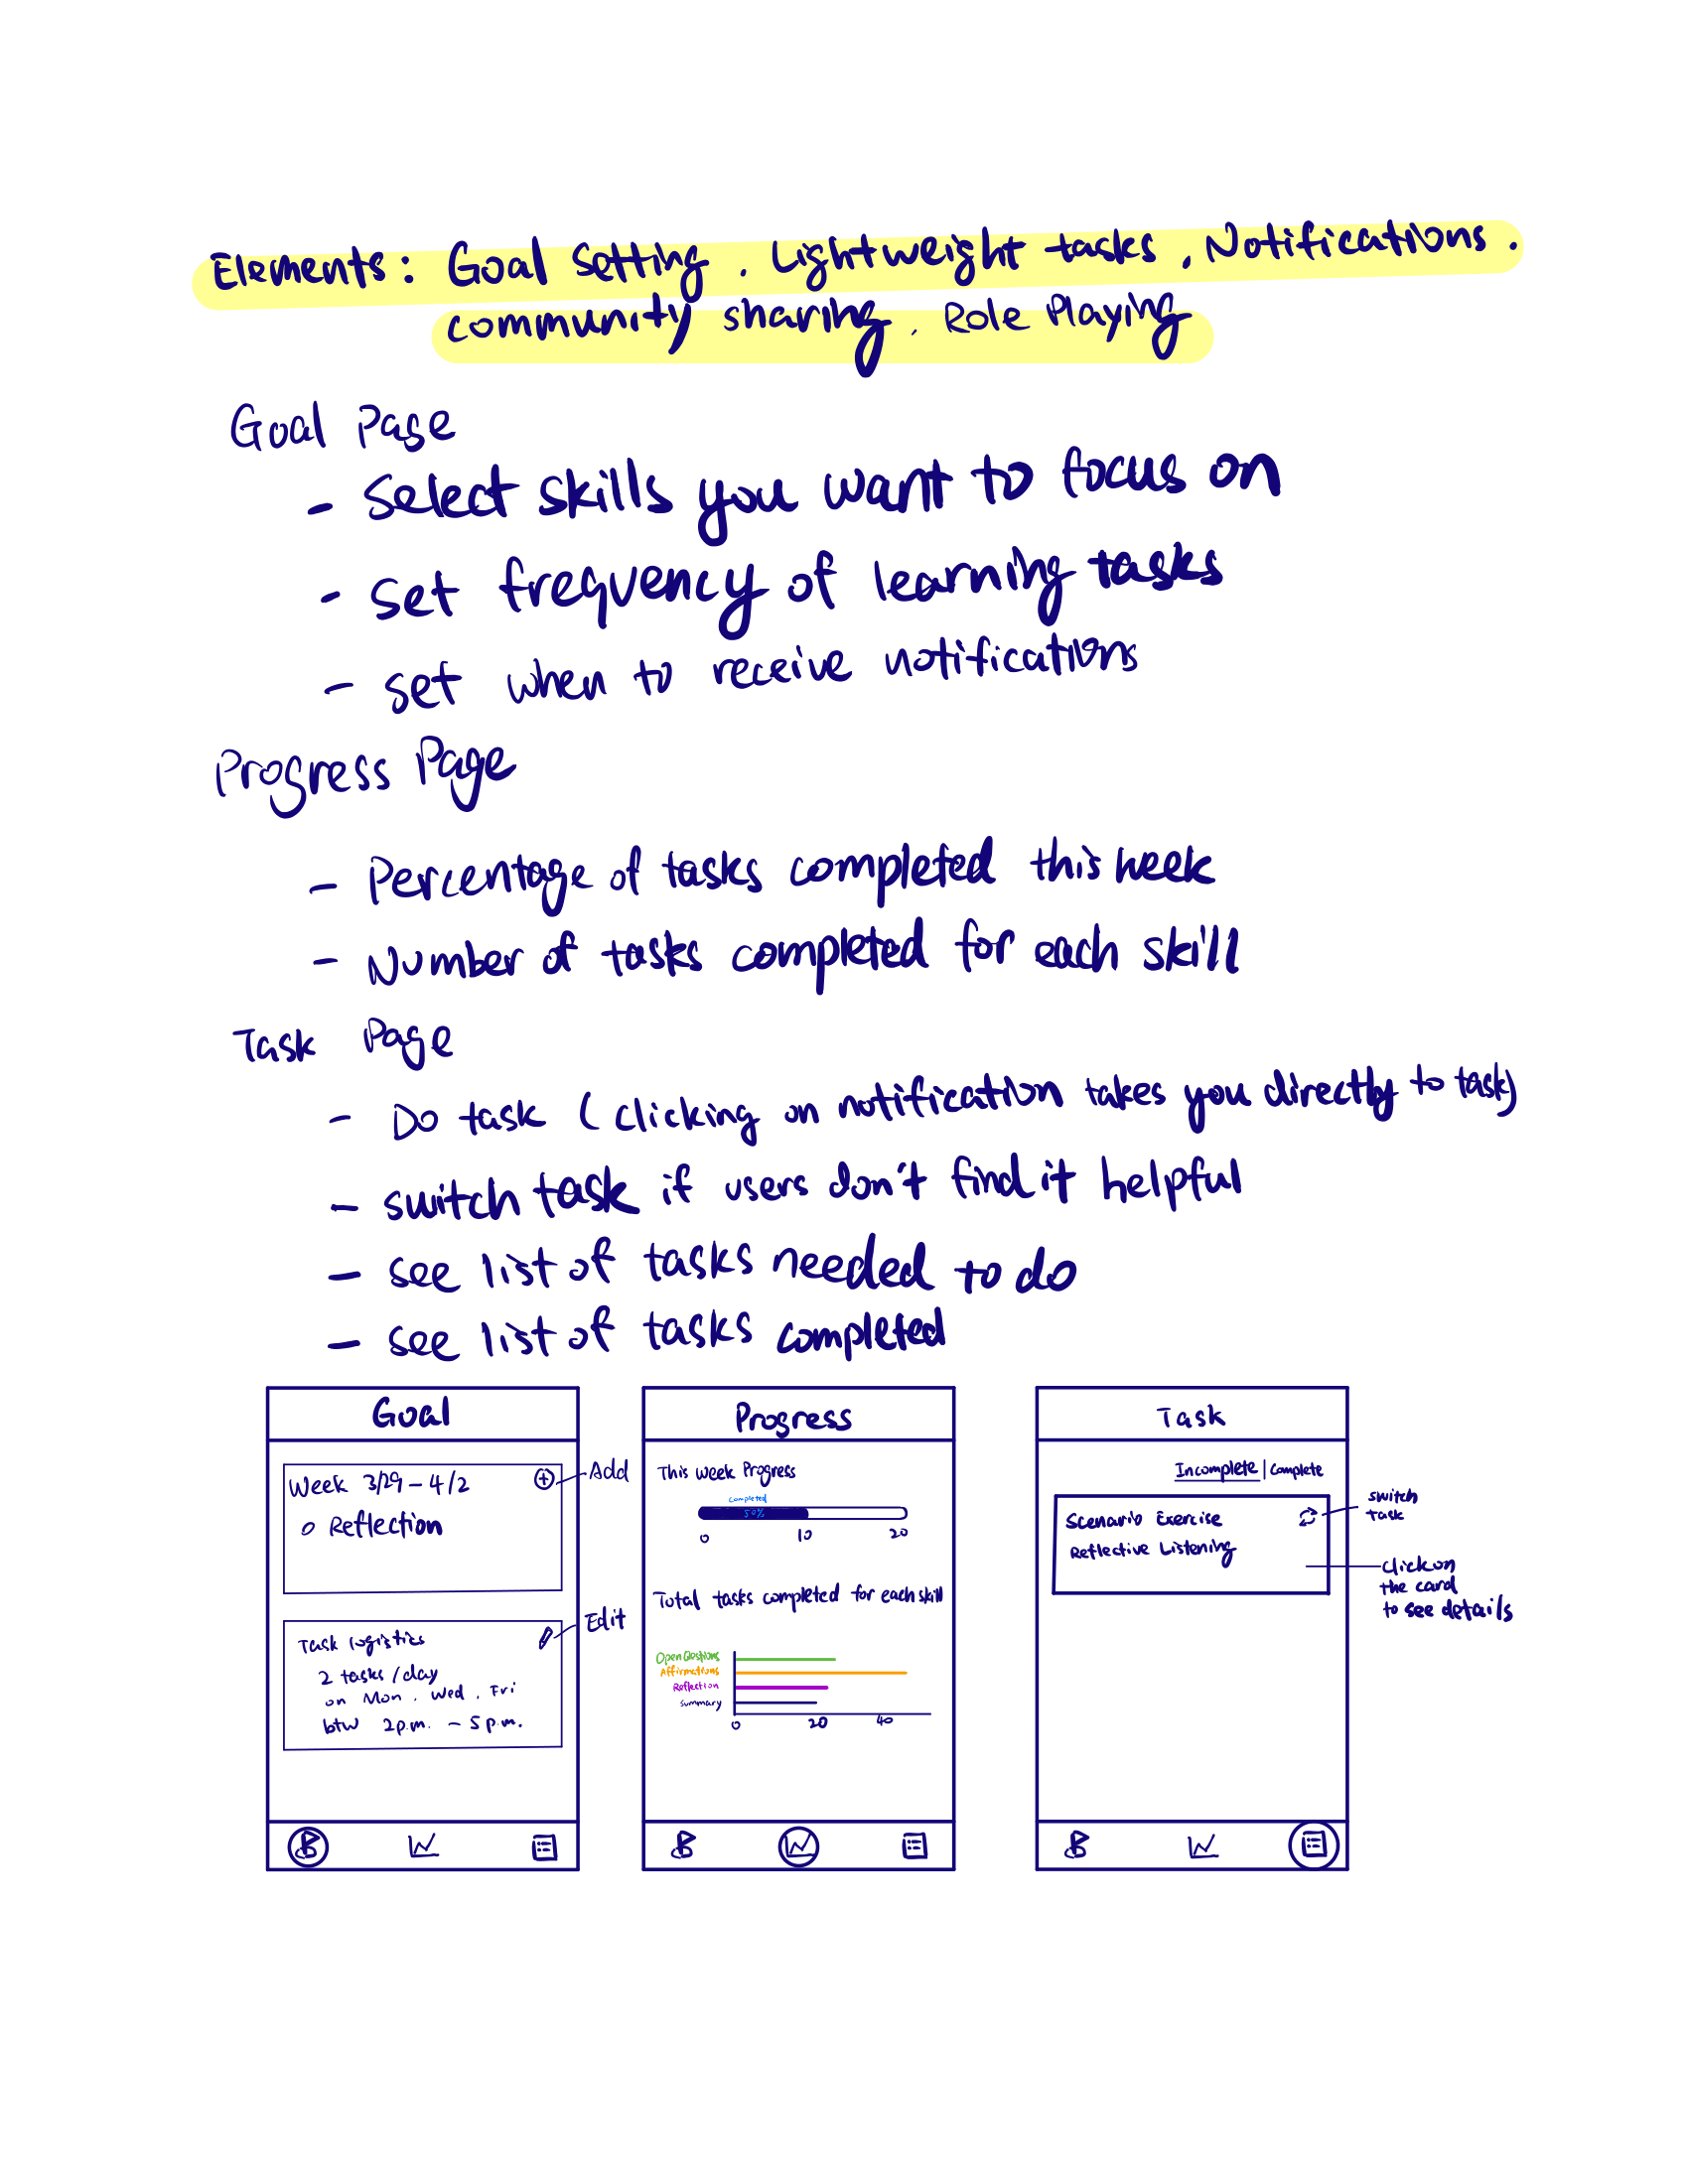 Elements: Goal Setting. Lightweight tasks, Notifications.
community sharing. Role Playing
Goal Page
- Select skills you want to focus on
- set frequency of learning tasks
- set when to receive notifications
Progress Page
- Percentage of tasks completed this week
- Number of tasks completed for each skill
Task Page
- Do task (clicking on notification takes you directly to task)
- switch task if users don't find it helpful
- see list of tasks needed to do
- see list of tasks completed
Goal
Week 3/29 - 4/2
Add
o Reflection
Task logistics
Edit
2 tasks / day
on Mon. Wed. Fri
btw 2p.m. - 5p.m.
Progress
This Week Progress
completed
50%
0 10 20
Total tasks completed for each skill
Open Questions
Affirmations
Reflection
summary
0 20 40
Task
Incomplete | complete
Scenario Exercise
Reflective Listening
switch
task
click on
the card
to see details